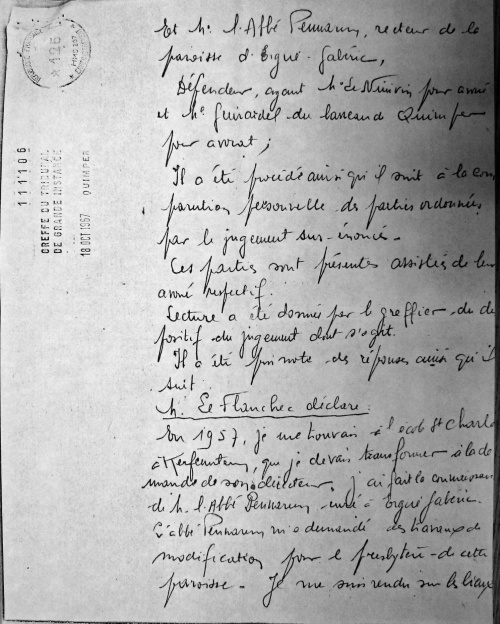 126
111106
GREFFE DU TRIBUNAL
DE GRANDE INSTANCE
18 OCT 1967 QUIMPER
Et M. l'Abbé Pennarun, recteur de la
paroisse d'Ergué-Gabéric,
Défendeur, ayant Me Le pour avoué
et Me Guirardel du barreau de Quimper
pour avocat ;
Il a été procédé ainsi qu'il suit à la com
parution personnelle des parties ordonnée
par le jugement sus-énoncé.
Ces parties sont présentes assistées de leur
avoué respectif.
Lecture a été donnée par le greffier du dis
positif du jugement dont s'agit.
Il a été pris note des réponses ainsi qu'il
suit
M. Le Flanchec déclare :
En 1957, je me trouvais à l'école St Charles
à Kerfeunteun, que je devais transformer à la de
mande de son directeur, j'ai fait la connaissance
de M. l'Abbé Pennarun curé à Ergué Gabéric.
L'abbé Pennarun m'a demandé des travaux de
modification pour le presbytère de cette
paroisse - Je me suis rendu sur les lieux